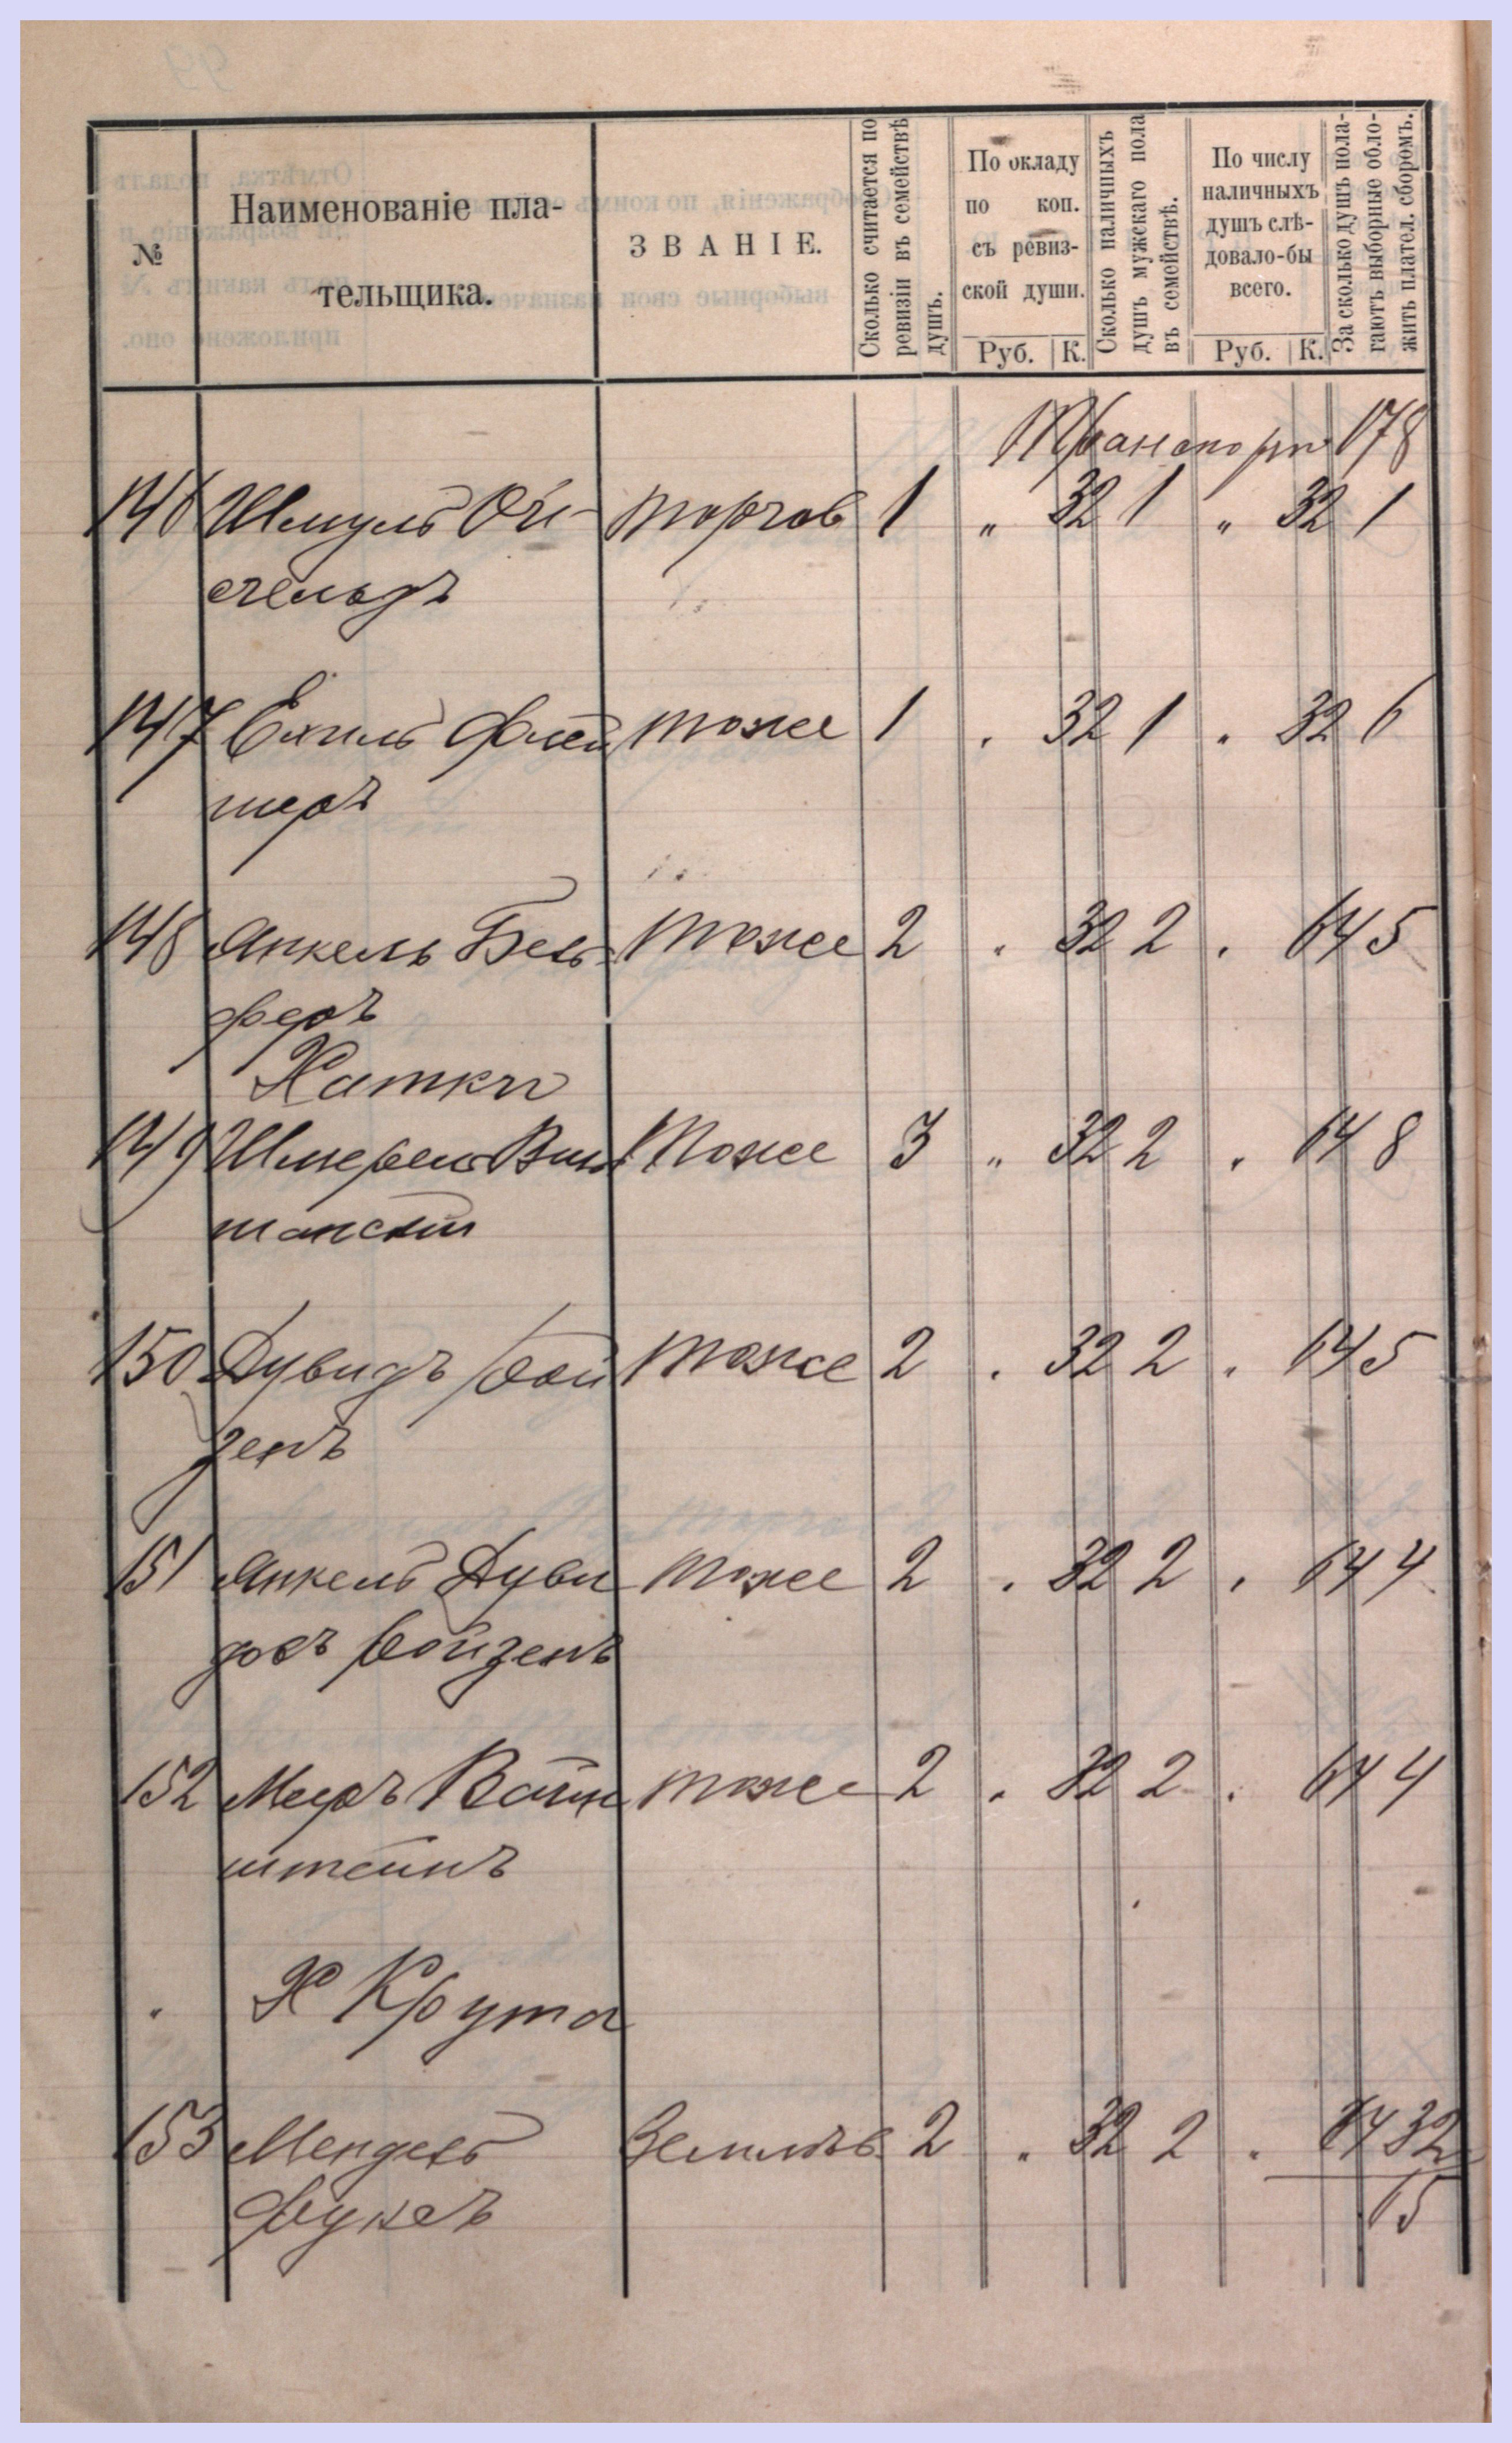 №
Наименованіе пла-
тельщика.
ЗВАНІЕ.
Сколько считается по
ревизіи въ семействѣ
душъ.
По окладу
по коп.
съ ревиз-
ской души.
Руб. К.
Сколько наличныхъ
душъ мужскаго пола
въ семействѣ.
По числу
наличныхъ
душъ слѣ-
довало-бы
всего.
Руб. К.
За сколько душъ пола-
гаютъ выборные обло-
жить плател. сборомъ.
Транспортъ 178
146 Шмуль торгов 1 „ 32 1 „ 32 1
147 Ехиль Флей тоже 1 „ 32 1 „ 32 6
шеръ
148 Янкель Бель тоже 2 „ 32 2 „ 64 5
феръ
Хатки
149 Шмерель тоже 3 „ 32 2 „ 64 8
150 Дувидъ Бой тоже 2 „ 32 2 „ 64 5
зенъ
151 Янкель Дуви тоже 2 „ 32 2 „ 64 4
довъ Бойзенъ
152 Мееръ Вайн тоже 2 „ 32 2 „ 64 4
штейнъ
Х Крута
153 Мендель 2 „ 32 2 „ 64 32
Фуксъ
65